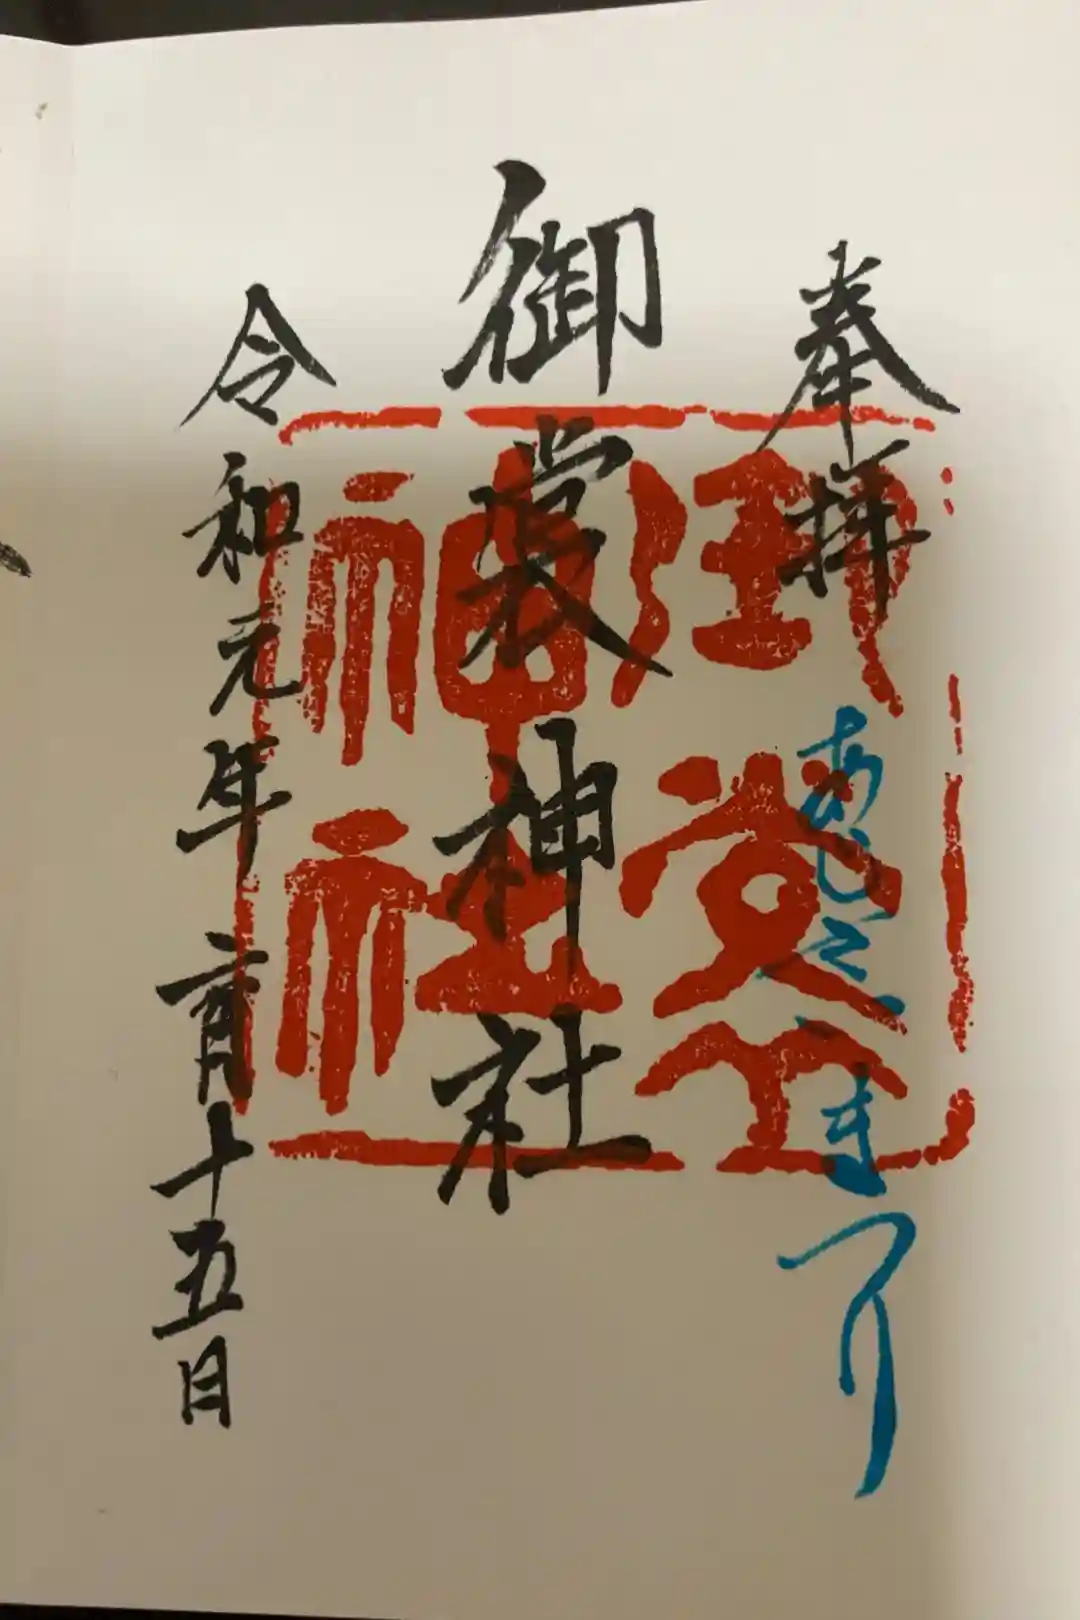 奉拝 あじさいまつり
御裳神社
令和元年六月十五日
御裳神社